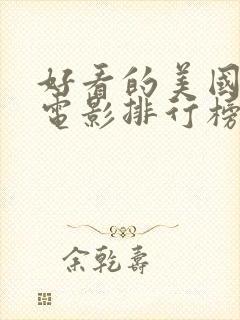 好看的美國
电影排行榜
余乾壽